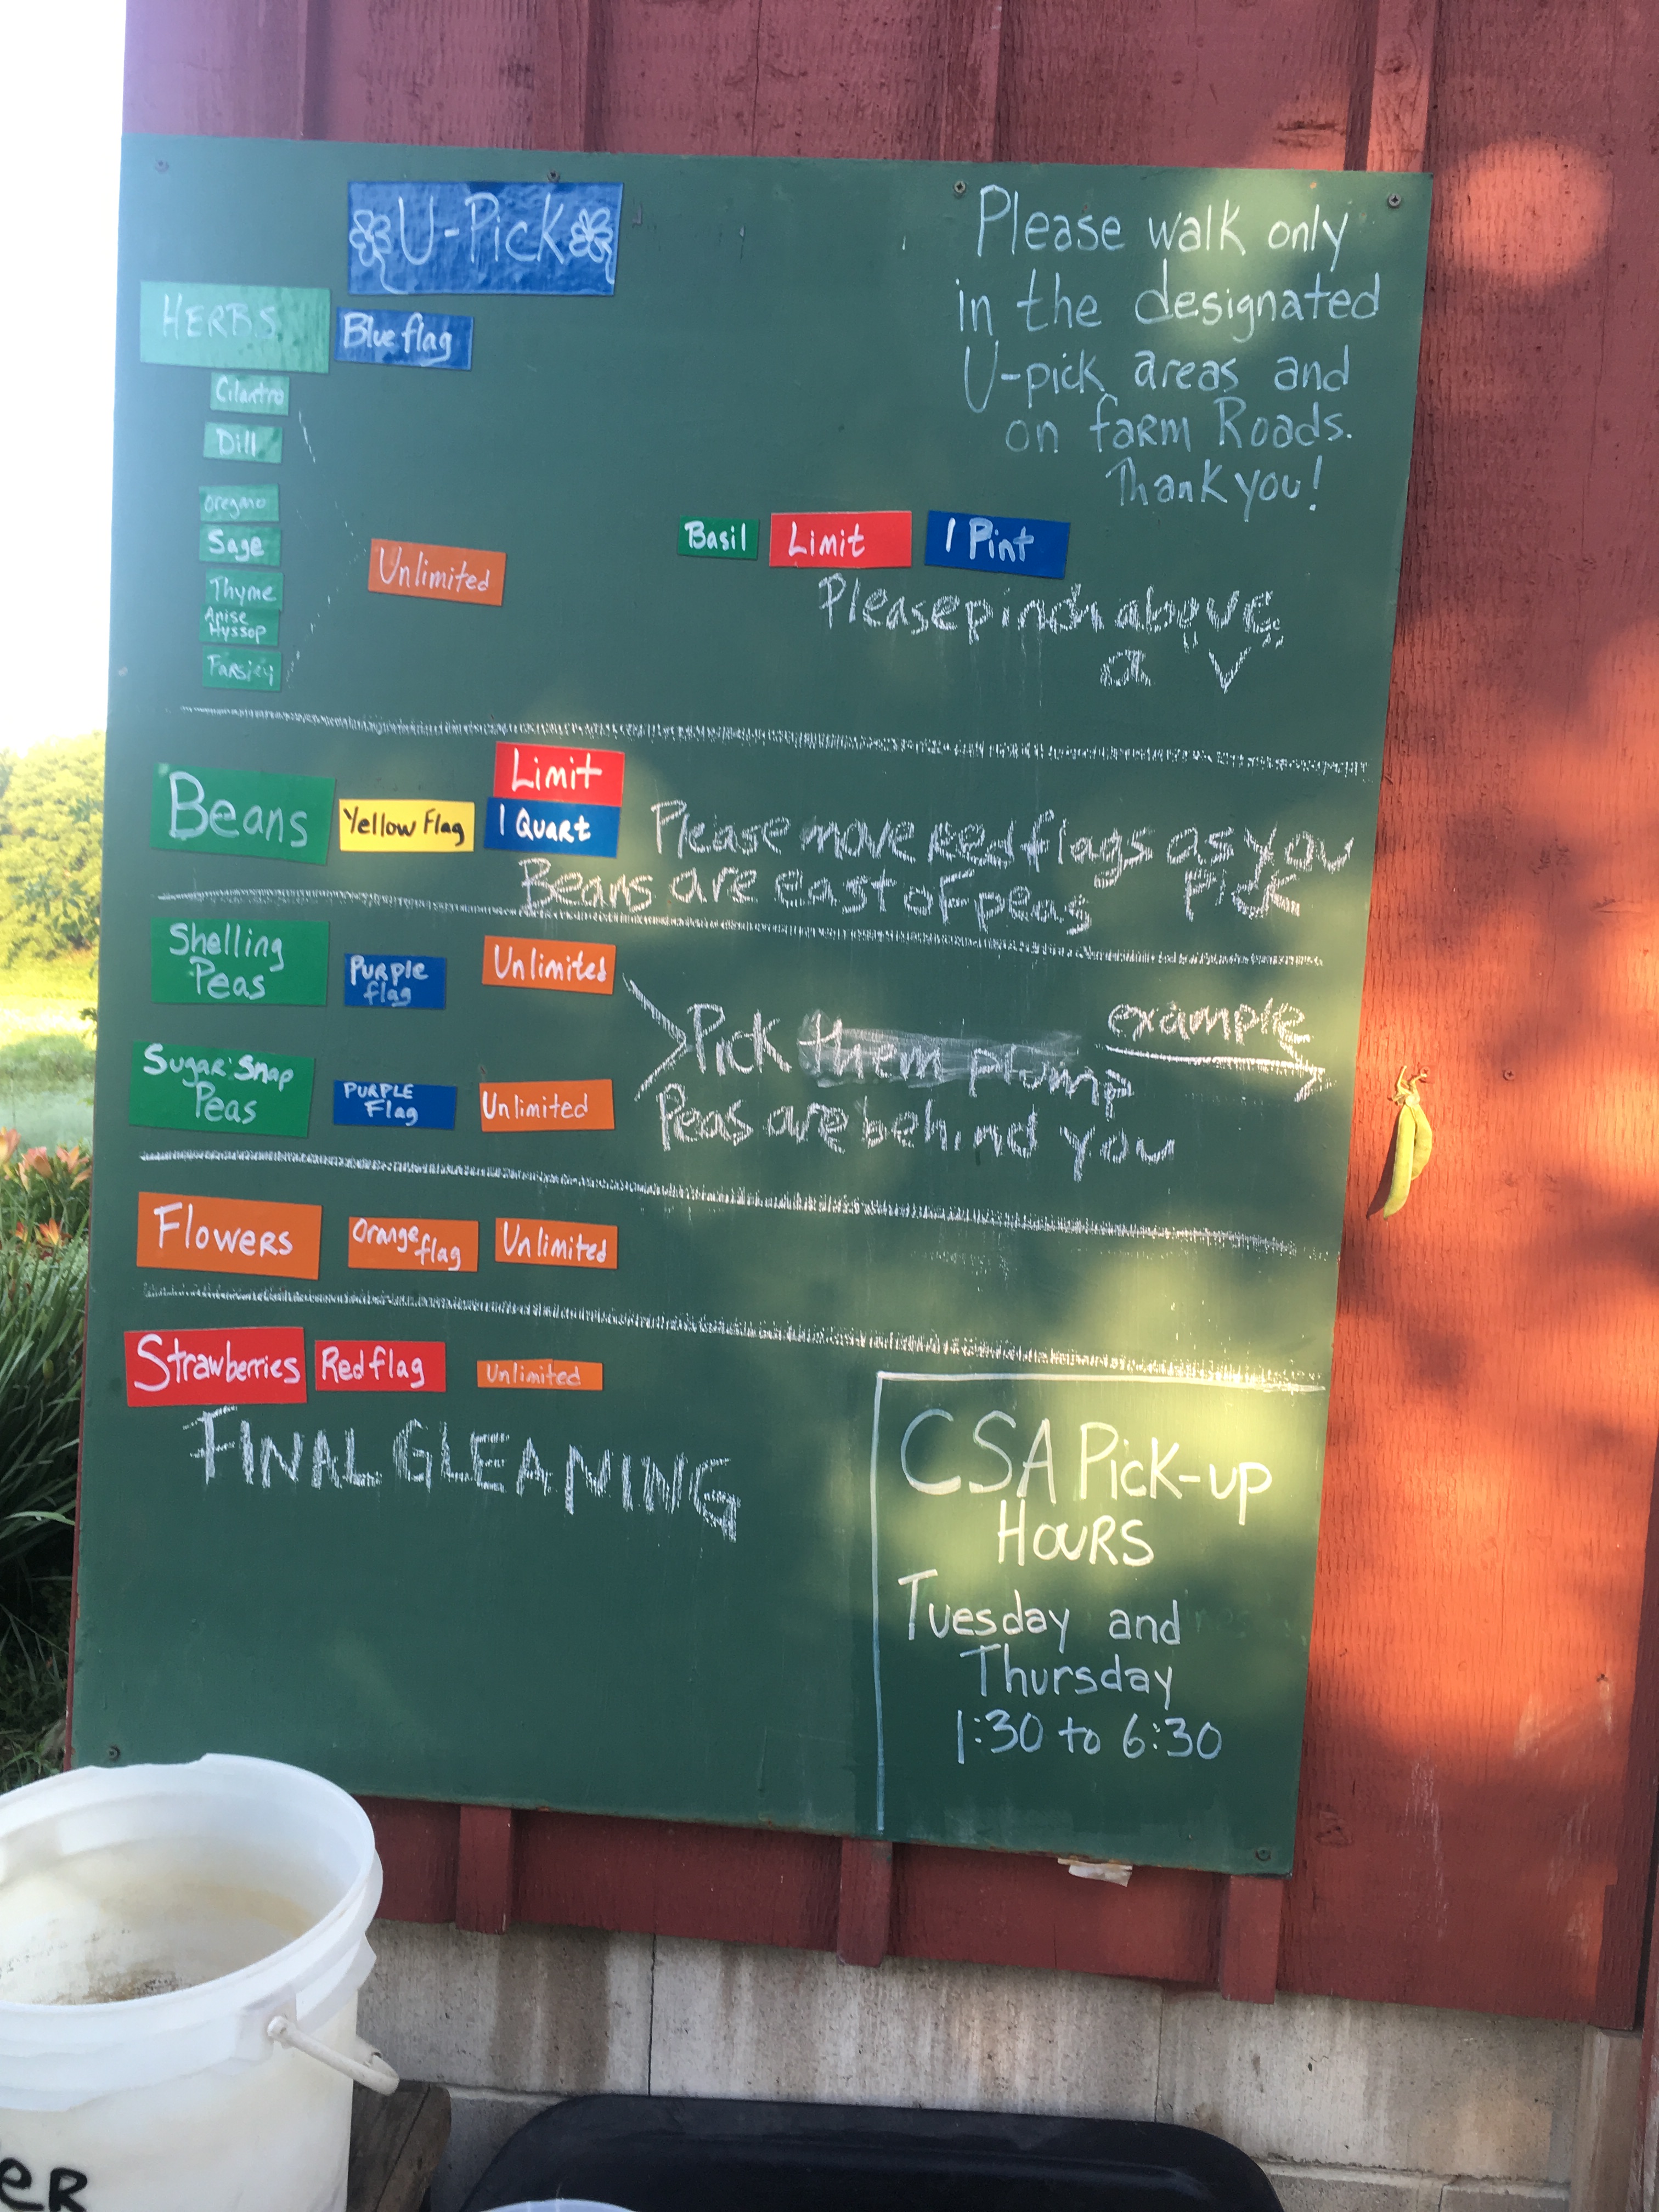 U-Pick
Please walk only
in the designated
U-pick areas and
on farm Roads.
Thank you!
HERBS
Blue flag
Cilantro
Dill
Oregano
Sage
Thyme
Anise
Hyssop
Parsley
Unlimited
Basil Limit 1 Pint
Please pinch above
a "V"
Beans
Yellow Flag
Limit
1 Quart
Please move Red flags as you
Pick
Beans are east of peas
Shelling
Peas
Purple
flag
Unlimited
Sugar Snap
Peas
PURPLE
Flag
Unlimited
Pick them plump
example
Peas are behind you
Flowers
Orange
flag
Unlimited
Strawberries Red flag Unlimited
FINAL GLEANING
CSA Pick-up
HOURS
Tuesday and
Thursday
1:30 to 6:30